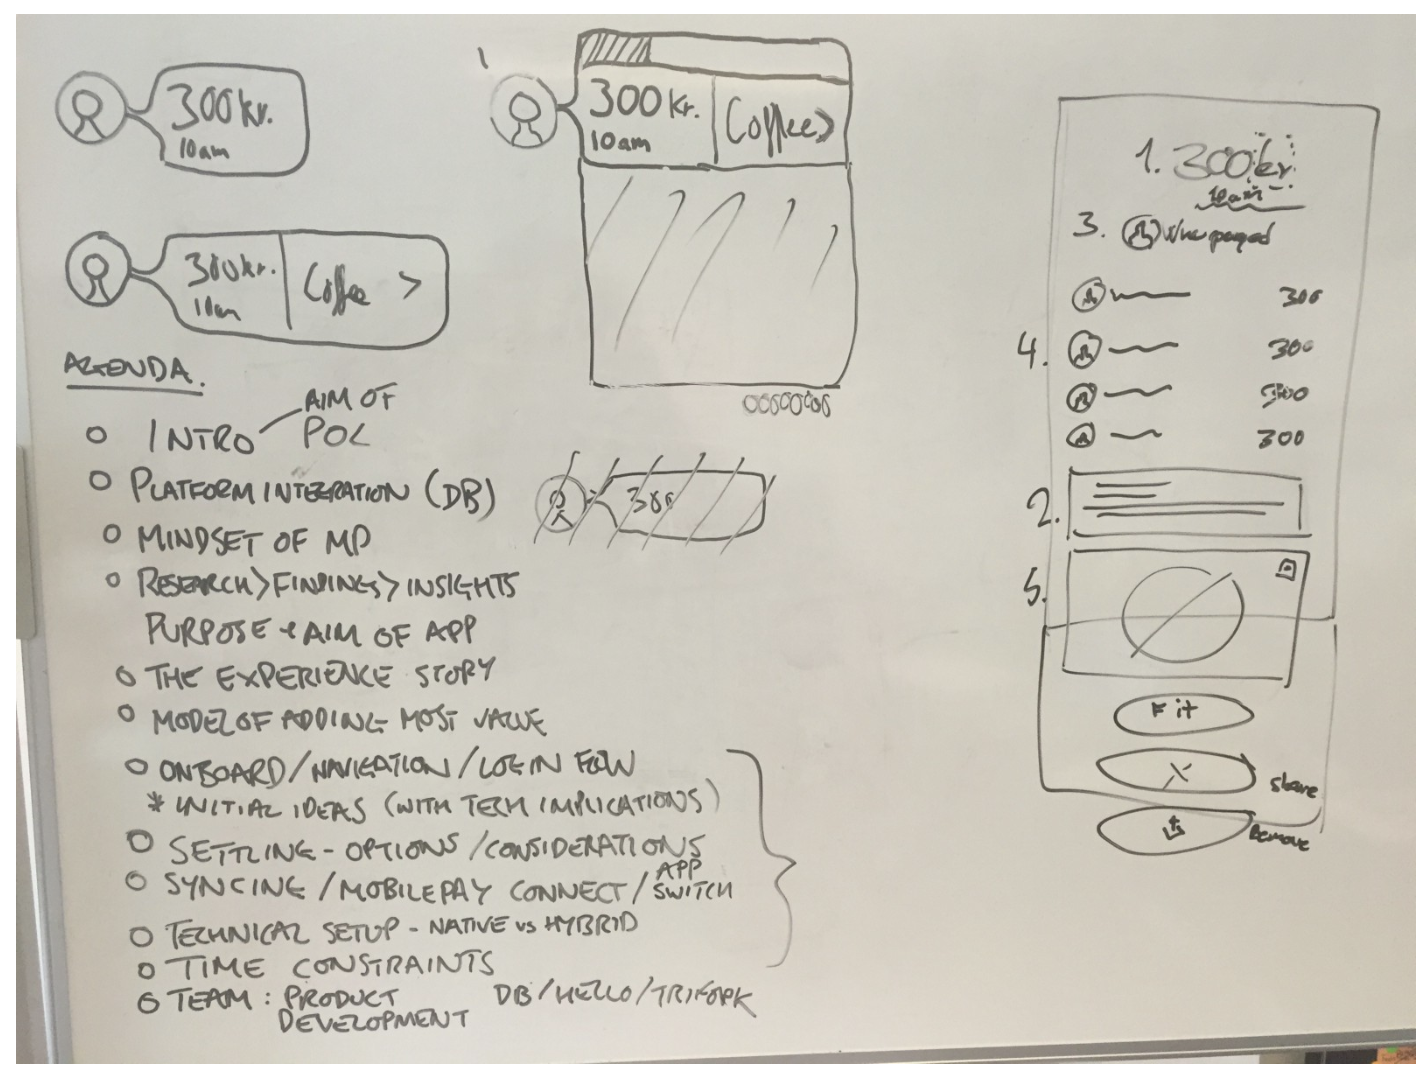 300 kr.
10am
300 kr.
10am
Coffee >
300 kr.
10am
Coffee >
300
AGENDA.
O INTRO AIM OF POC
O PLATFORM INTEGRATION (DB)
O MINDSET OF MP
O RESEARCH > FINDINGS > INSIGHTS
PURPOSE + AIM OF APP
O THE EXPERIENCE STORY
O MODEL OF ADDING MOST VALUE
O ONBOARD / NAVIGATION / LOGIN FLOW
* INITIAL IDEAS (WITH TECH IMPLICATIONS)
O SETTLING - OPTIONS / CONSIDERATIONS
O SYNCING / MOBILEPAY CONNECT / APP SWITCH
O TECHNICAL SETUP - NATIVE vs HYBRID
O TIME CONSTRAINTS
O TEAM : PRODUCT DEVELOPMENT DB / HELLO / TRIFORK
1. 300 kr
10am
3. Who payed
300
4. 300
300
300
2.
5.
Share
Remove